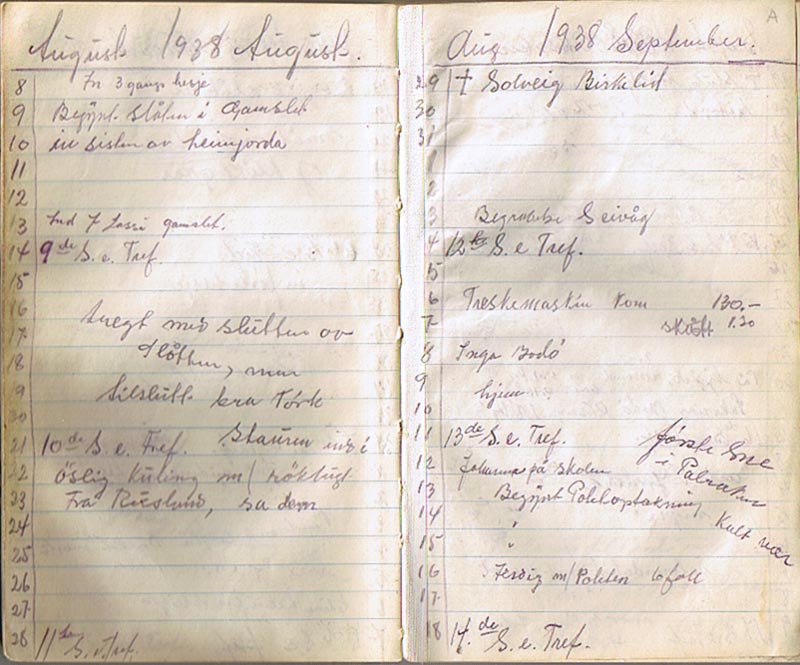 August 1938 August.
8 Fr 3 gangs hesje
9 Begynt slåtten i Gamslet
10 in sisten av heimjorda
11
12
13 Ind 7 Lass gamslet.
14 9de S. e. Tref.
15
16
17 med slutten av
18 Slåtten, men
19 tilslutt bra Törk
20
21 10de S. e. Tref. Stauren ind i
22 Östlig Kuling m/ röklugt
23 Fra Rusland, sa dem
24
25
26
27
28 11te S. e. Tref.
Aug 1938 September.
A
29 † Solveig Birkelid
30
31
1
2
3 Begravelse Seivåg
4 12te S. e. Tref.
5
6 Treskemaskin kom 130.-
7 skuft 1.20
8 Inga Bodö
9 hjem
10
11 13de S. e. Tref. förste Sne
12 Johannes på skolen i
13 Begynt Potetoptakning
14 " Kult vær
15 "
16 Ferdig m/ Poteten
17
18 14.de S. e. Tref.